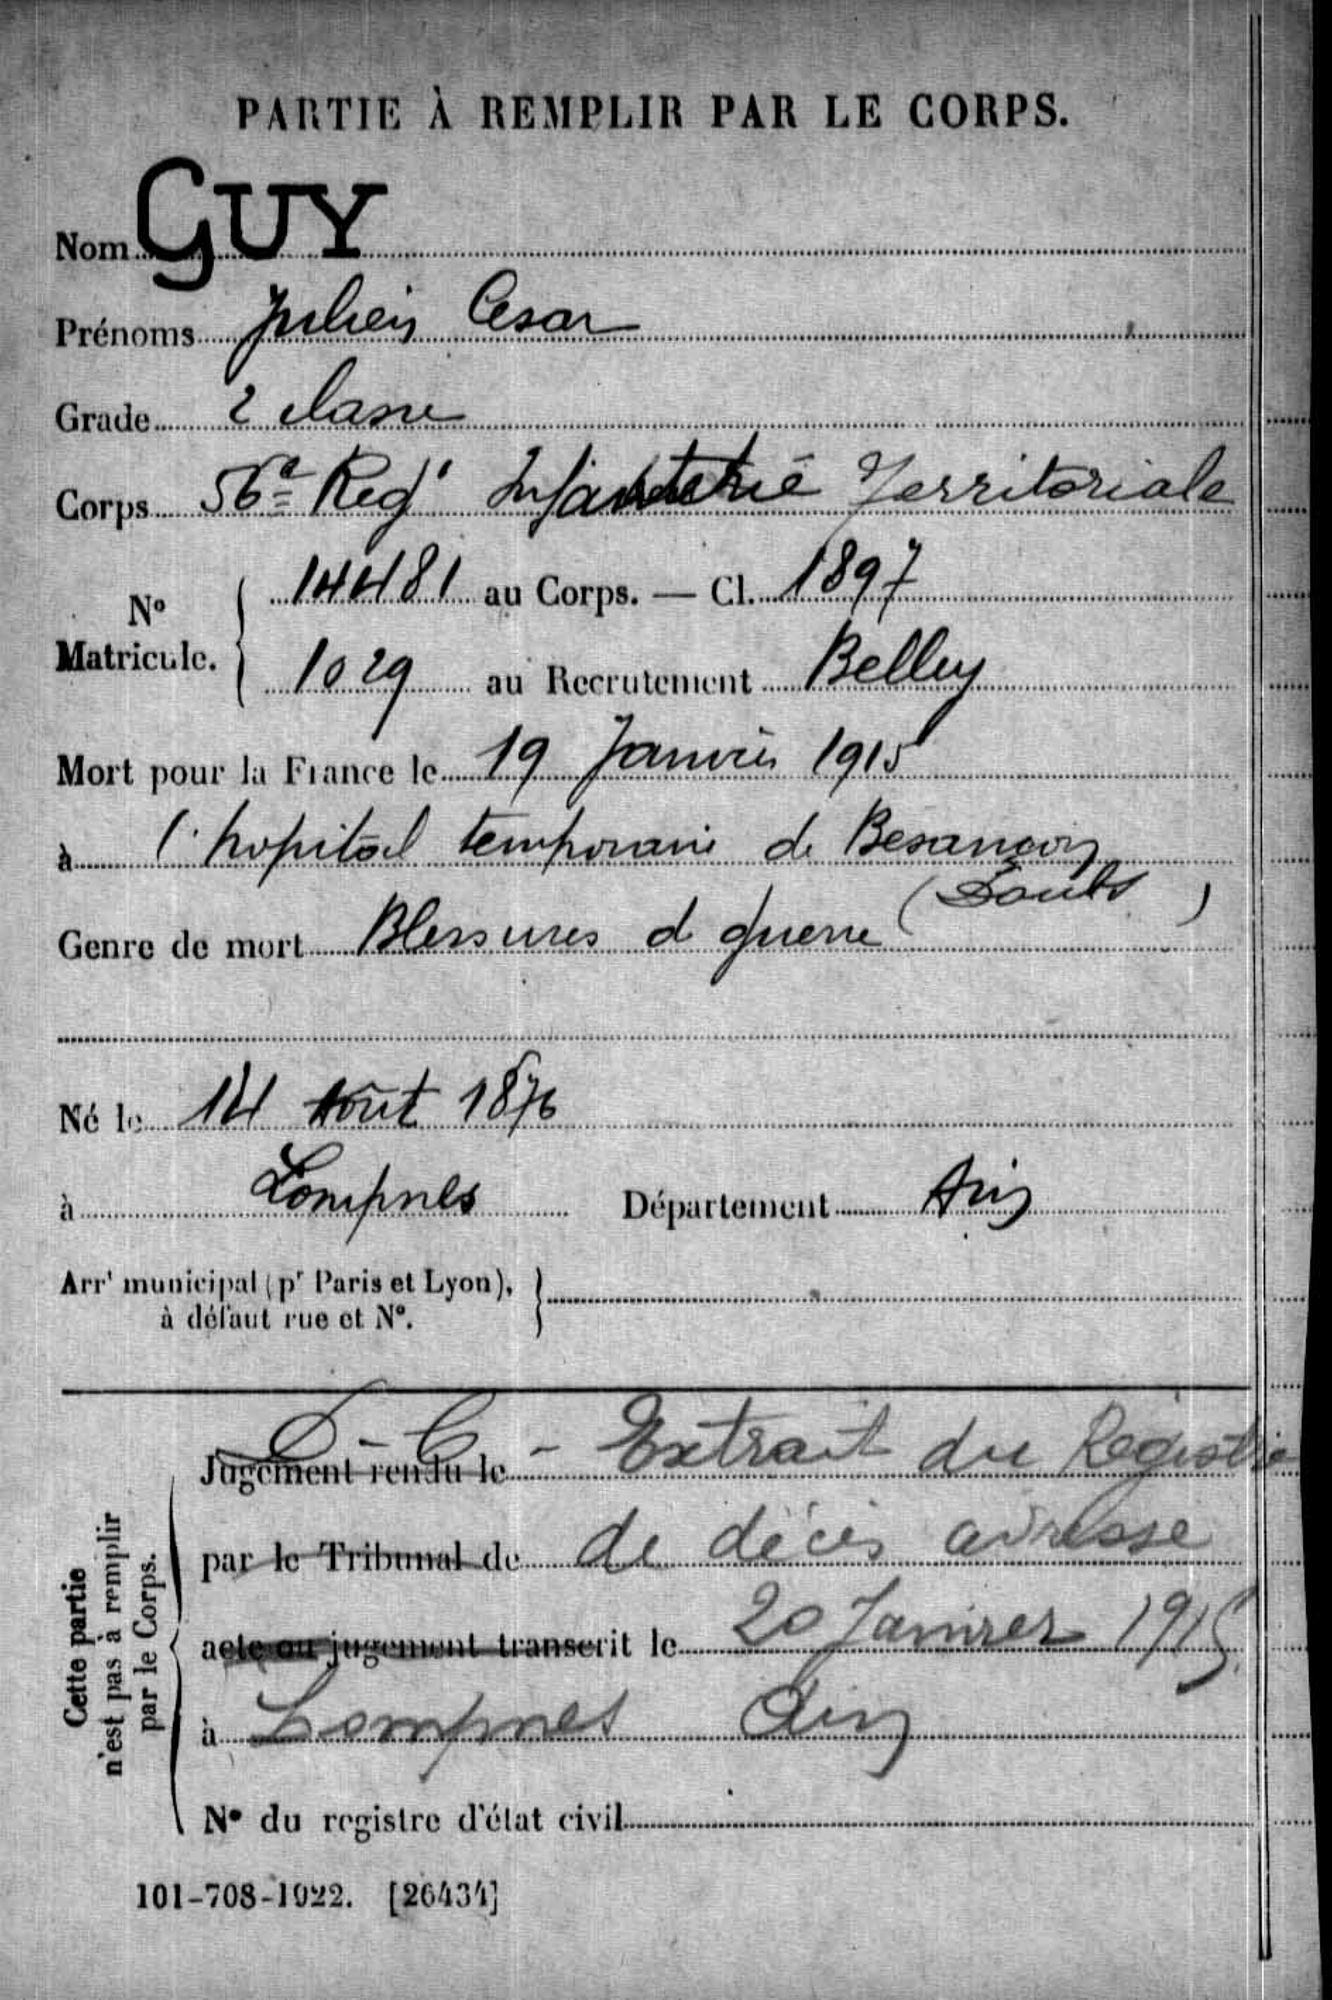 PARTIE À REMPLIR PAR LE CORPS.
Nom GUY
Prénoms Julien Cesar
Grade 2 classe
Corps 56e Regt Infanterie Territoriale
No Matricule. 14481 au Corps. — Cl. 1897
1029 au Recrutement Belley
Mort pour la France le 19 Janvier 1915
à l'hopital temporaire de Besançon
(Doubs)
Genre de mort Blessures d guerre
Né le 14 Août 1876
à Lompnes Département Ain
Arrt municipal (pr Paris et Lyon),
à défaut rue et No.
Cette partie
n'est pas à remplir
par le Corps.
Jugement rendu le D-C- Extrait du Registre
par le Tribunal de de décès adresse
acte ou jugement transcrit le 20 Janvier 1915
à Lompnes Ain
No du registre d'état civil
101-708-1922. [26434]